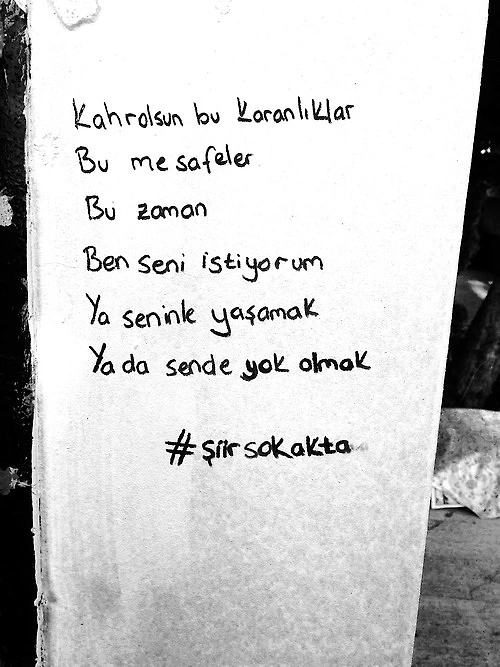 Kahrolsun bu Karanlıklar
Bu mesafeler
Bu zaman
Ben seni istiyorum
Ya seninle yaşamak
Ya da sende yok olmak
#şiirsokakta